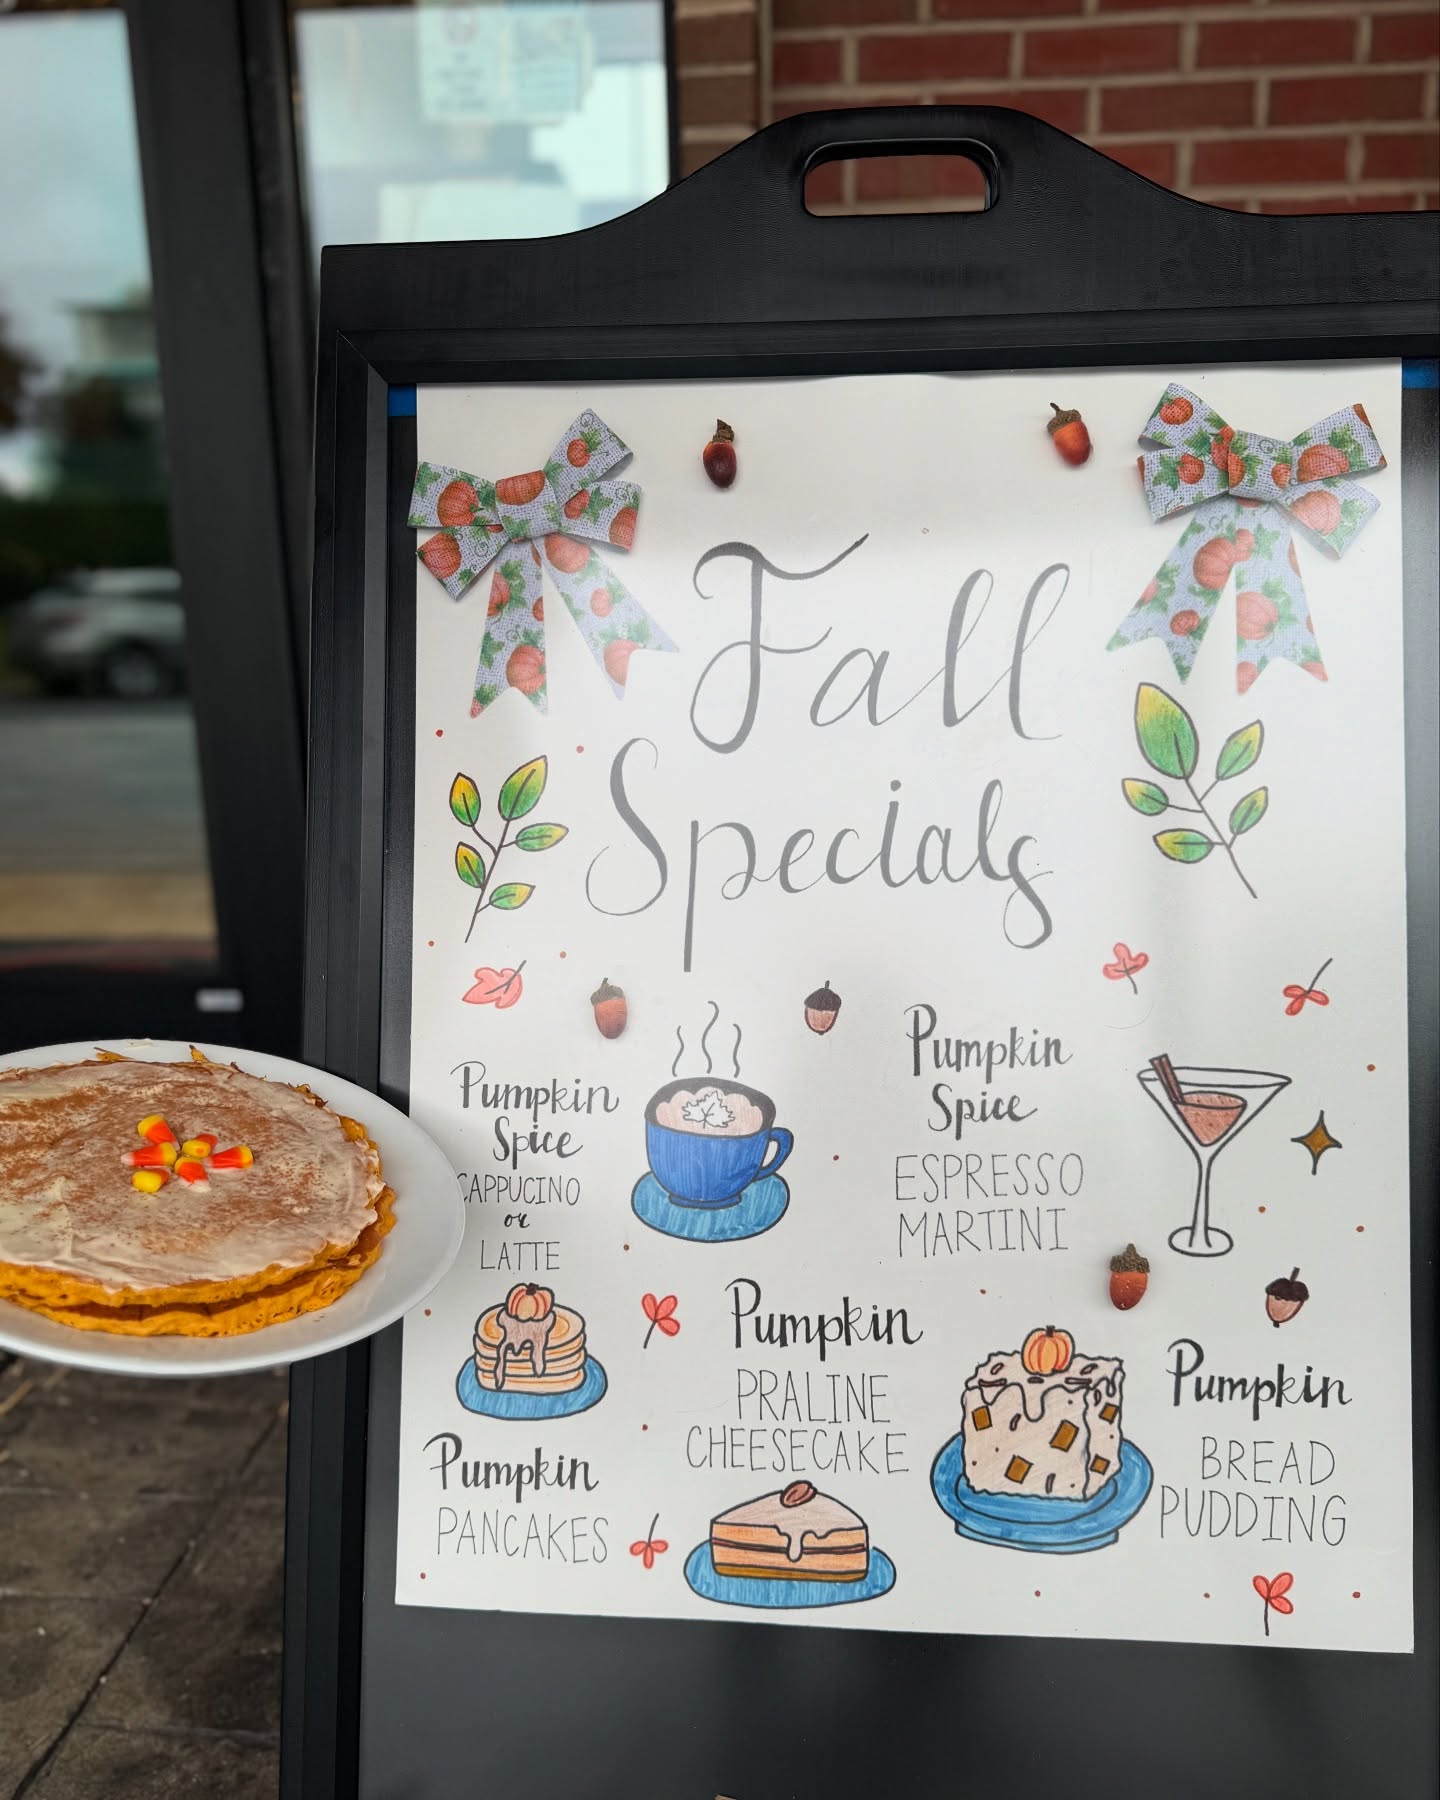 Fall
Specials
Pumpkin
Spice
CAPPUCINO
or
LATTE
Pumpkin
Spice
ESPRESSO
MARTINI
Pumpkin
PANCAKES
Pumpkin
PRALINE
CHEESECAKE
Pumpkin
BREAD
PUDDING